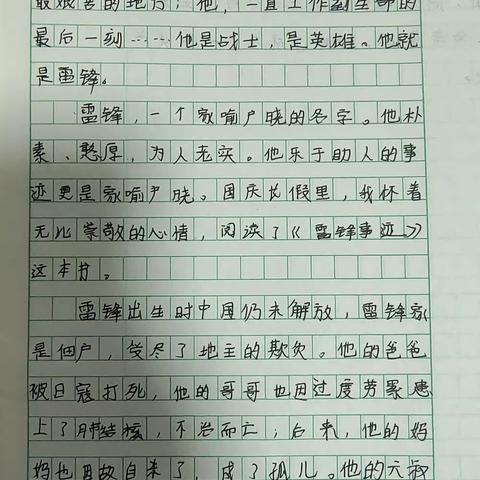 最艰苦的地方；他，一直工作到生命的
最后一刻……他是战士，是英雄。他就
是雷锋。
雷锋，一个家喻户晓的名字。他朴
素、憨厚，为人老实。他乐于助人的事
迹更是家喻户晓。国庆长假里，我怀着
无比崇敬的心情，阅读了《雷锋事迹》
这本书。
雷锋出生时中国仍未解放，雷锋家
是佃户，受尽了地主的欺负。他的爸爸
被日寇打死，他的哥哥也因过度劳累患
上了肺结核，不治而亡；后来，他的妈
妈也因故自来了，成了孤儿。他的六叔